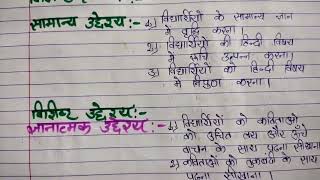 सामान्य उद्देश्य:- 1.) विद्यार्थियों के सामान्य ज्ञान
में वृद्धि करना।
2) विद्यार्थियों की हिन्दी विषय
में रुचि उत्पन्न करना।
3) विद्यार्थियों को हिन्दी विषय
में निपुण करना।
विशिष्ट उद्देश्य:-
ज्ञानात्मक उद्देश्य:- 1.) विद्यार्थियों को कविताओं
को उचित लय और
वाचन के साथ पढ़ना सीखना
2) कविताओं को के साथ
पढ़ना सीखना।